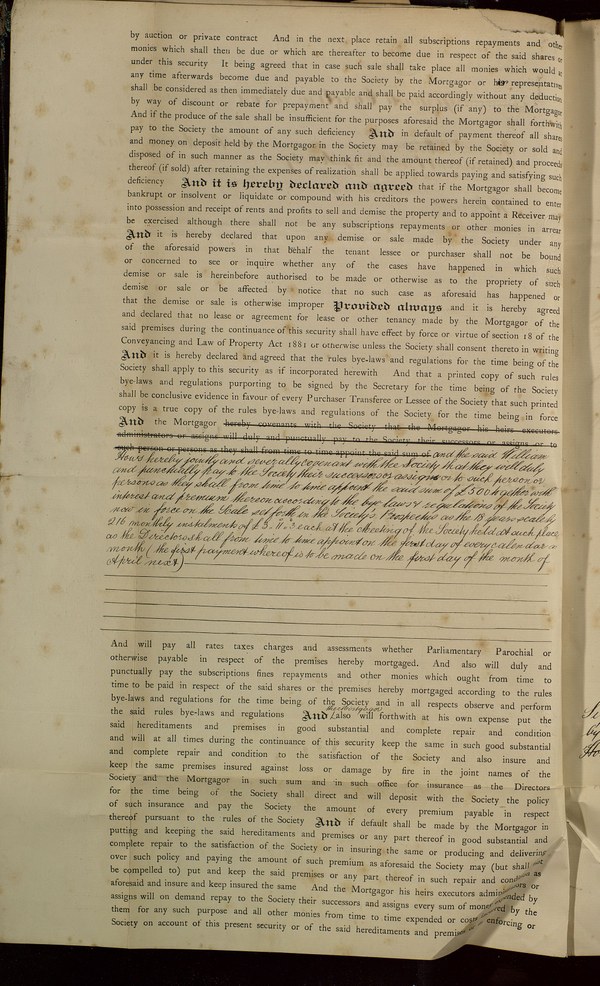 by auction or private contract And in the next place retain all subscriptions repayments and other
monies which shall then be due or which are thereafter to become due in respect of the said shares or
under this security It being agreed that in case such sale shall take place all monies which would at
any time afterwards become due and payable to the Society by the Mortgagor or his representatives
shall be considered as then immediately due and payable and shall be paid accordingly without any deduction
by way of discount or rebate for prepayment and shall pay the surplus (if any) to the Mortgagor
And if the produce of the sale shall be insufficient for the purposes aforesaid the Mortgagor shall forthwith
pay to the Society the amount of any such deficiency And in default of payment thereof all shares
and money on deposit held by the Mortgagor in the Society may be retained by the Society or sold and
disposed of in such manner as the Society may think fit and the amount thereof (if retained) and proceeds
thereof (if sold) after retaining the expenses of realization shall be applied towards paying and satisfying such
deficiency And it is hereby declared and agreed that if the Mortgagor shall become
bankrupt or insolvent or liquidate or compound with his creditors the powers herein contained to enter
into possession and receipt of rents and profits to sell and demise the property and to appoint a Receiver may
be exercised although there shall not be any subscriptions repayments or other monies in arrear
And it is hereby declared that upon any demise or sale made by the Society under any
of the aforesaid powers in that behalf the tenant lessee or purchaser shall not be bound
or concerned to see or inquire whether any of the cases have happened in which such
demise or sale is hereinbefore authorised to be made or otherwise as to the propriety of such
demise or sale or be affected by notice that no such case as aforesaid has happened or
that the demise or sale is otherwise improper Provided always and it is hereby agreed
and declared that no lease or agreement for lease or other tenancy made by the Mortgagor of the
said premises during the continuance of this security shall have effect by force or virtue of section 18 of the
Conveyancing and Law of Property Act 1881 or otherwise unless the Society shall consent thereto in writing
And it is hereby declared and agreed that the rules bye-laws and regulations for the time being of the
Society shall apply to this security as if incorporated herewith And that a printed copy of such rules
bye-laws and regulations purporting to be signed by the Secretary for the time being of the Society
shall be conclusive evidence in favour of every Purchaser Transferee or Lessee of the Society that such printed
copy is a true copy of the rules bye-laws and regulations of the Society for the time being in force
And the Mortgagor hereby covenants with the Society that the Mortgagor his heirs executors
administrators or assigns will duly and punctually pay to the Society their successors or assigns or to
such person or persons as they shall from time to time appoint the said sum of and the said William
Hows hereby jointly and severally covenant with the Society that they will duly
and punctually pay to the Society their successors or assigns or to such person or
persons as they shall from time to time appoint the said sum of £500 together with
interest and premium thereon according to the bye laws & regulations of the Society
now in force on the Scale set forth in the Society's Prospectus as the 18 years scale by
216 monthly instalments of £3. 11. each at the Meeting of the Society held at such place
as the Directors shall from time to time appoint on the first day of every calendar
month (the first payment whereof is to be made on the first day of the month of
April next)
And will pay all rates taxes charges and assessments whether Parliamentary Parochial or
otherwise payable in respect of the premises hereby mortgaged. And also will duly and
punctually pay the subscriptions fines repayments and other monies which ought from time to
time to be paid in respect of the said shares or the premises hereby mortgaged according to the rules
bye-laws and regulations for the time being of the Society and in all respects observe and perform
the said rules bye-laws and regulations And the Mortgagor also will forthwith at his own expense put the
said hereditaments and premises in good substantial and complete repair and condition
and will at all times during the continuance of this security keep the same in such good substantial
and complete repair and condition to the satisfaction of the Society and also insure and
keep the same premises insured against loss or damage by fire in the joint names of the
Society and the Mortgagor in such sum and in such office for insurance as the Directors
for the time being of the Society shall direct and will deposit with the Society the policy
of such insurance and pay the Society the amount of every premium payable in respect
thereof pursuant to the rules of the Society And if default shall be made by the Mortgagor in
putting and keeping the said hereditaments and premises or any part thereof in good substantial and
complete repair to the satisfaction of the Society or in insuring the same or producing and delivering
over such policy and paying the amount of such premium as aforesaid the Society may (but shall not
be compelled to) put and keep the said premises or any part thereof in such repair and condition as
aforesaid and insure and keep insured the same And the Mortgagor his heirs executors or
assigns will on demand repay to the Society their successors and assigns every sum of by
them for any such purpose and all other monies from time to time expended or by the
Society on account of this present security or of the said hereditaments and enforcing or